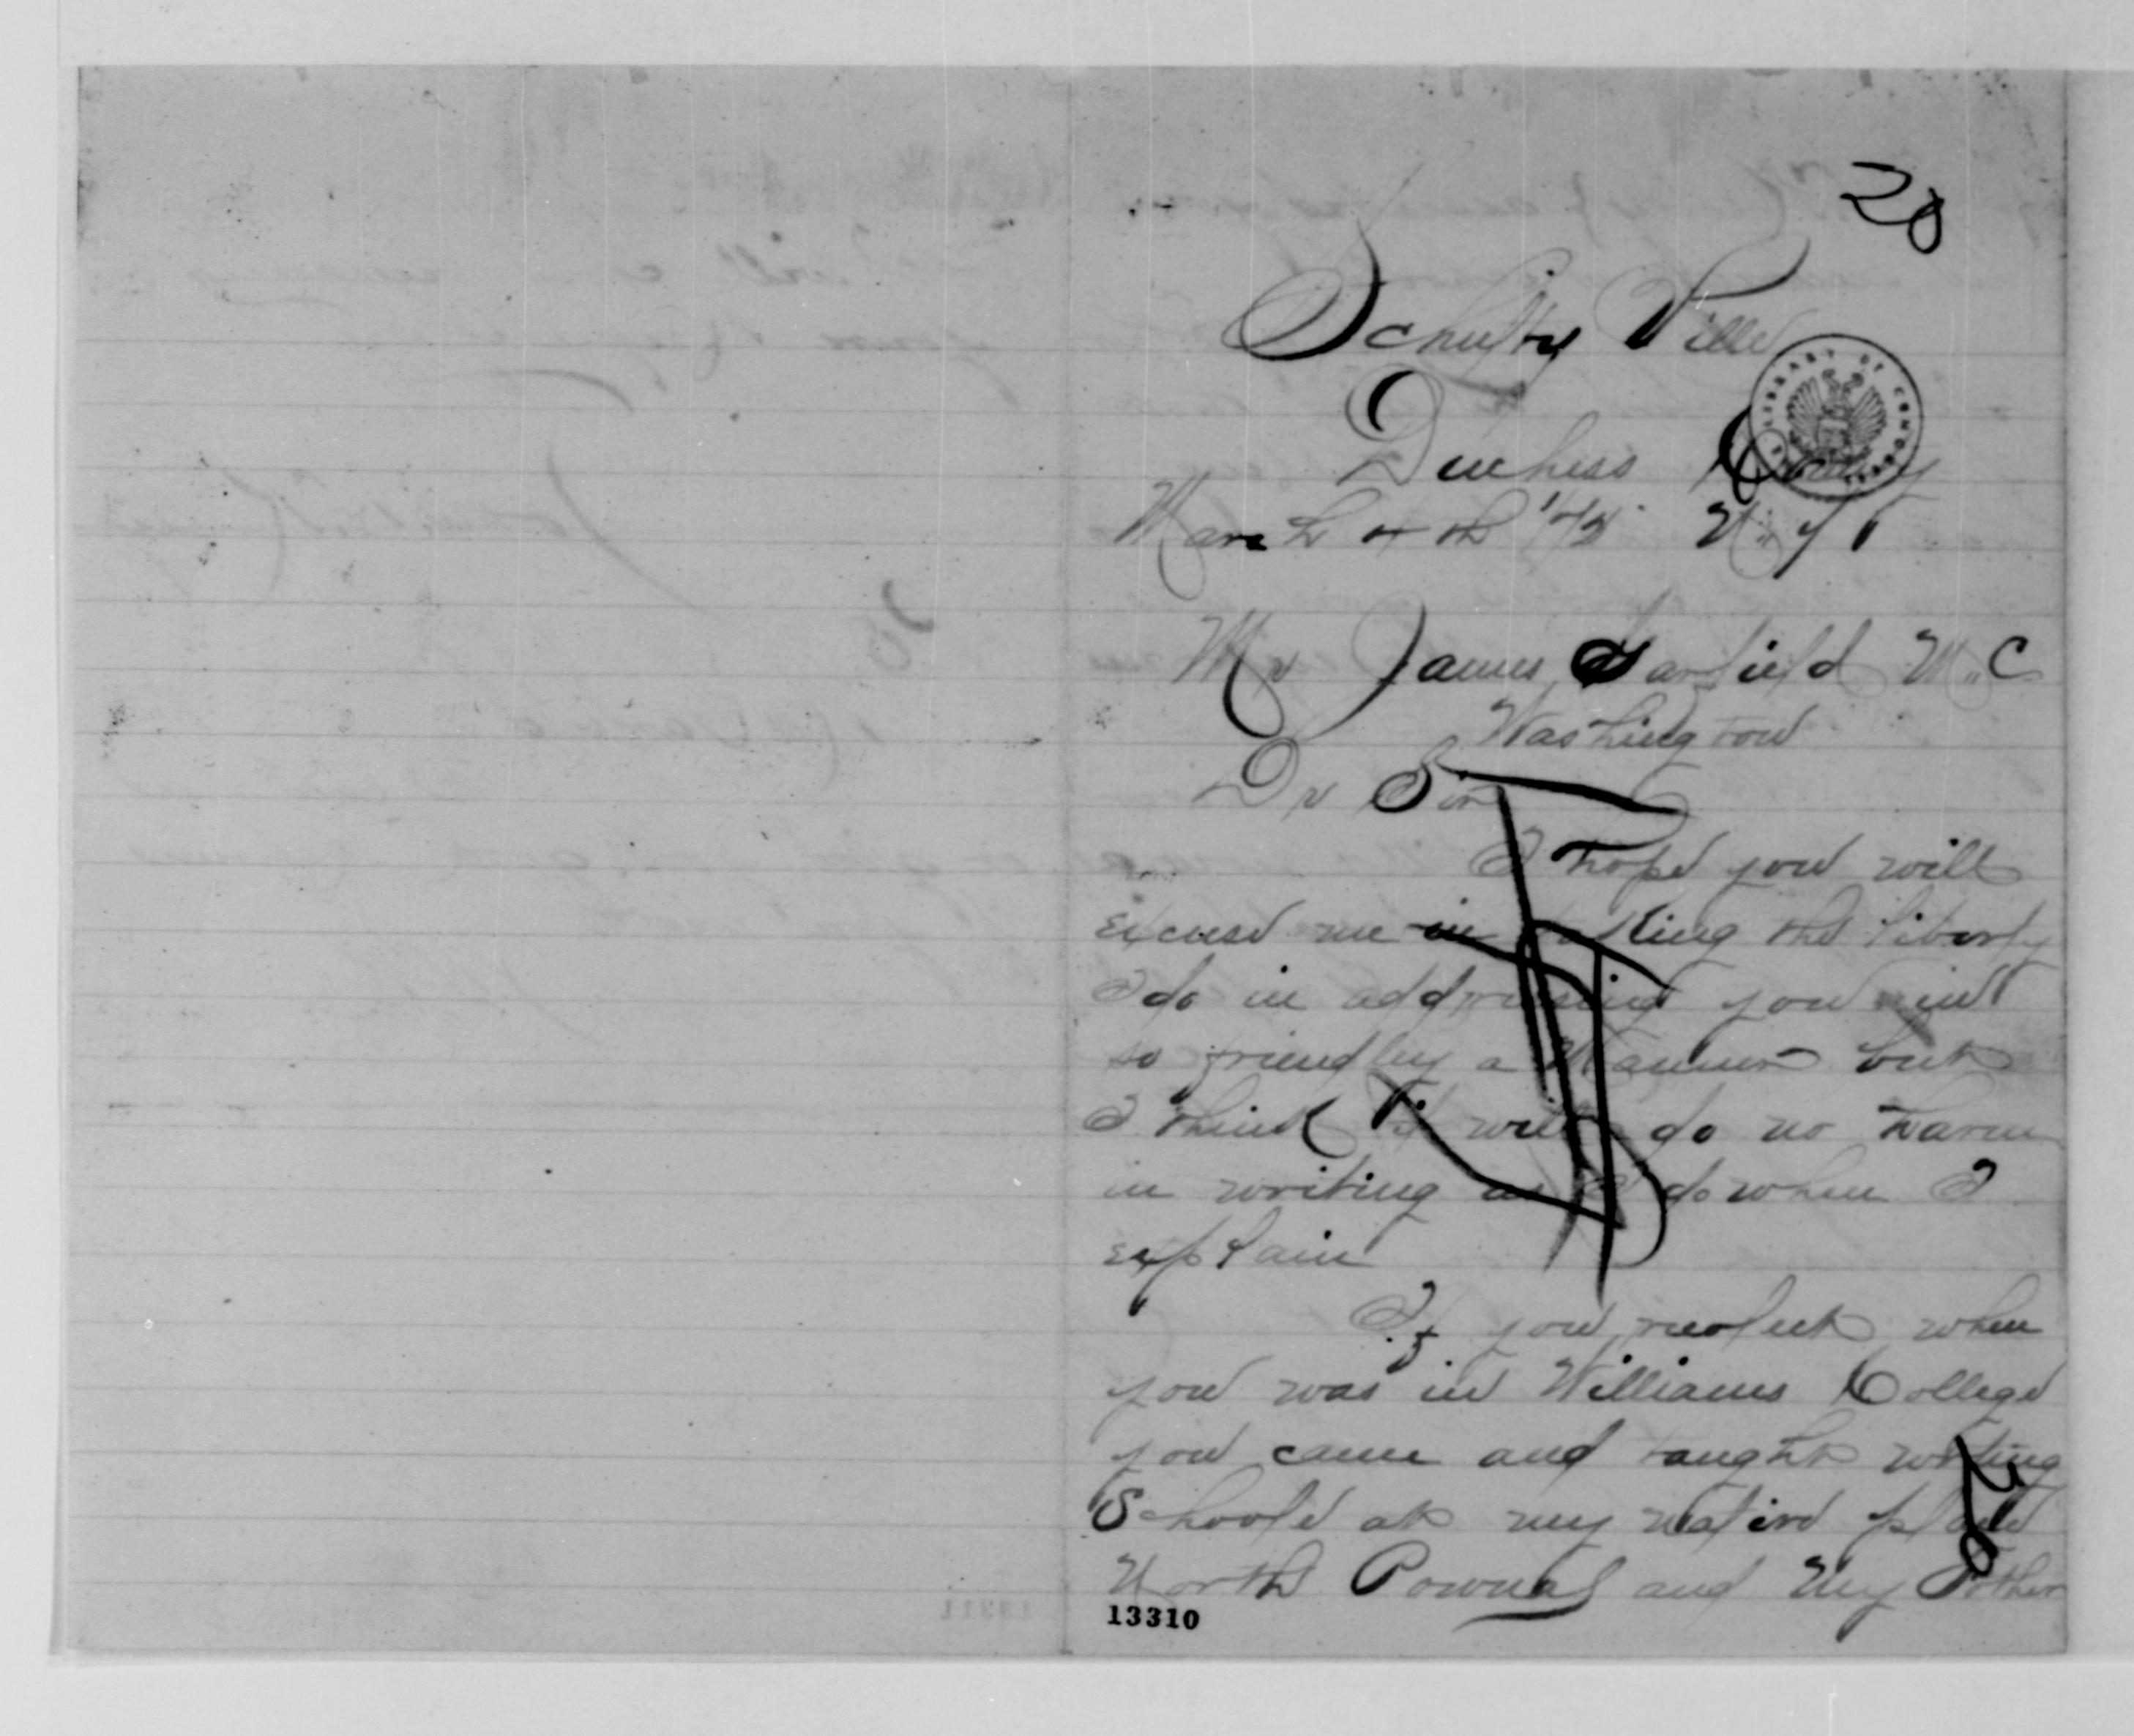 20
Schultz Ville
Duchess County
March 4th N.Y
LIBRARY OF CONGRESS
Mr James Garfield M.C
Washington
Dr Sir
I hope you will
excuse me in taking the liberty
I do in addressing you in
so friendly a Manner but
I think it will do no harm
in writing as I do when I
explain
If you recolect when
you was in Williams College
you came and taught writing
School at my native place
North Pownal and My Father
13310